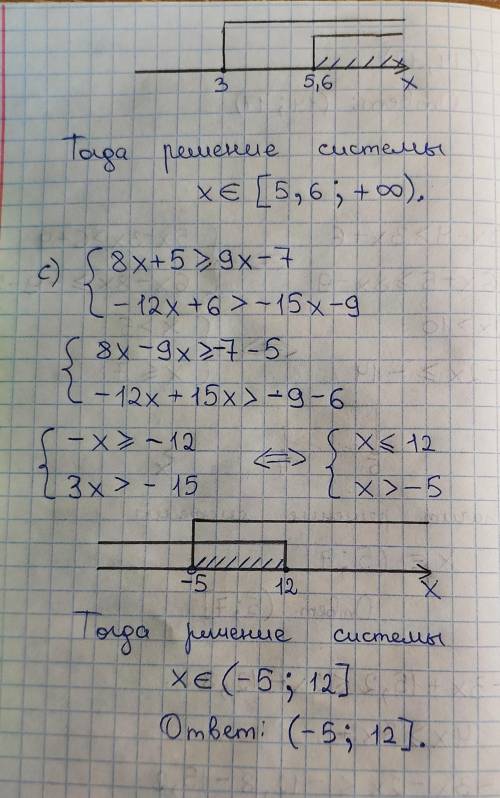 3 5,6 x
Тогда решение системы
x ∈ [5,6 ; +∞).
c) { 8x+5 ⩾ 9x-7
-12x+6 > -15x-9
{ 8x-9x ⩾ -7-5
-12x+15x > -9-6
{ -x ⩾ -12 ⟺ { x ⩽ 12
3x > -15 x > -5
-5 12 x
Тогда решение системы
x ∈ (-5 ; 12]
Ответ: (-5 ; 12].